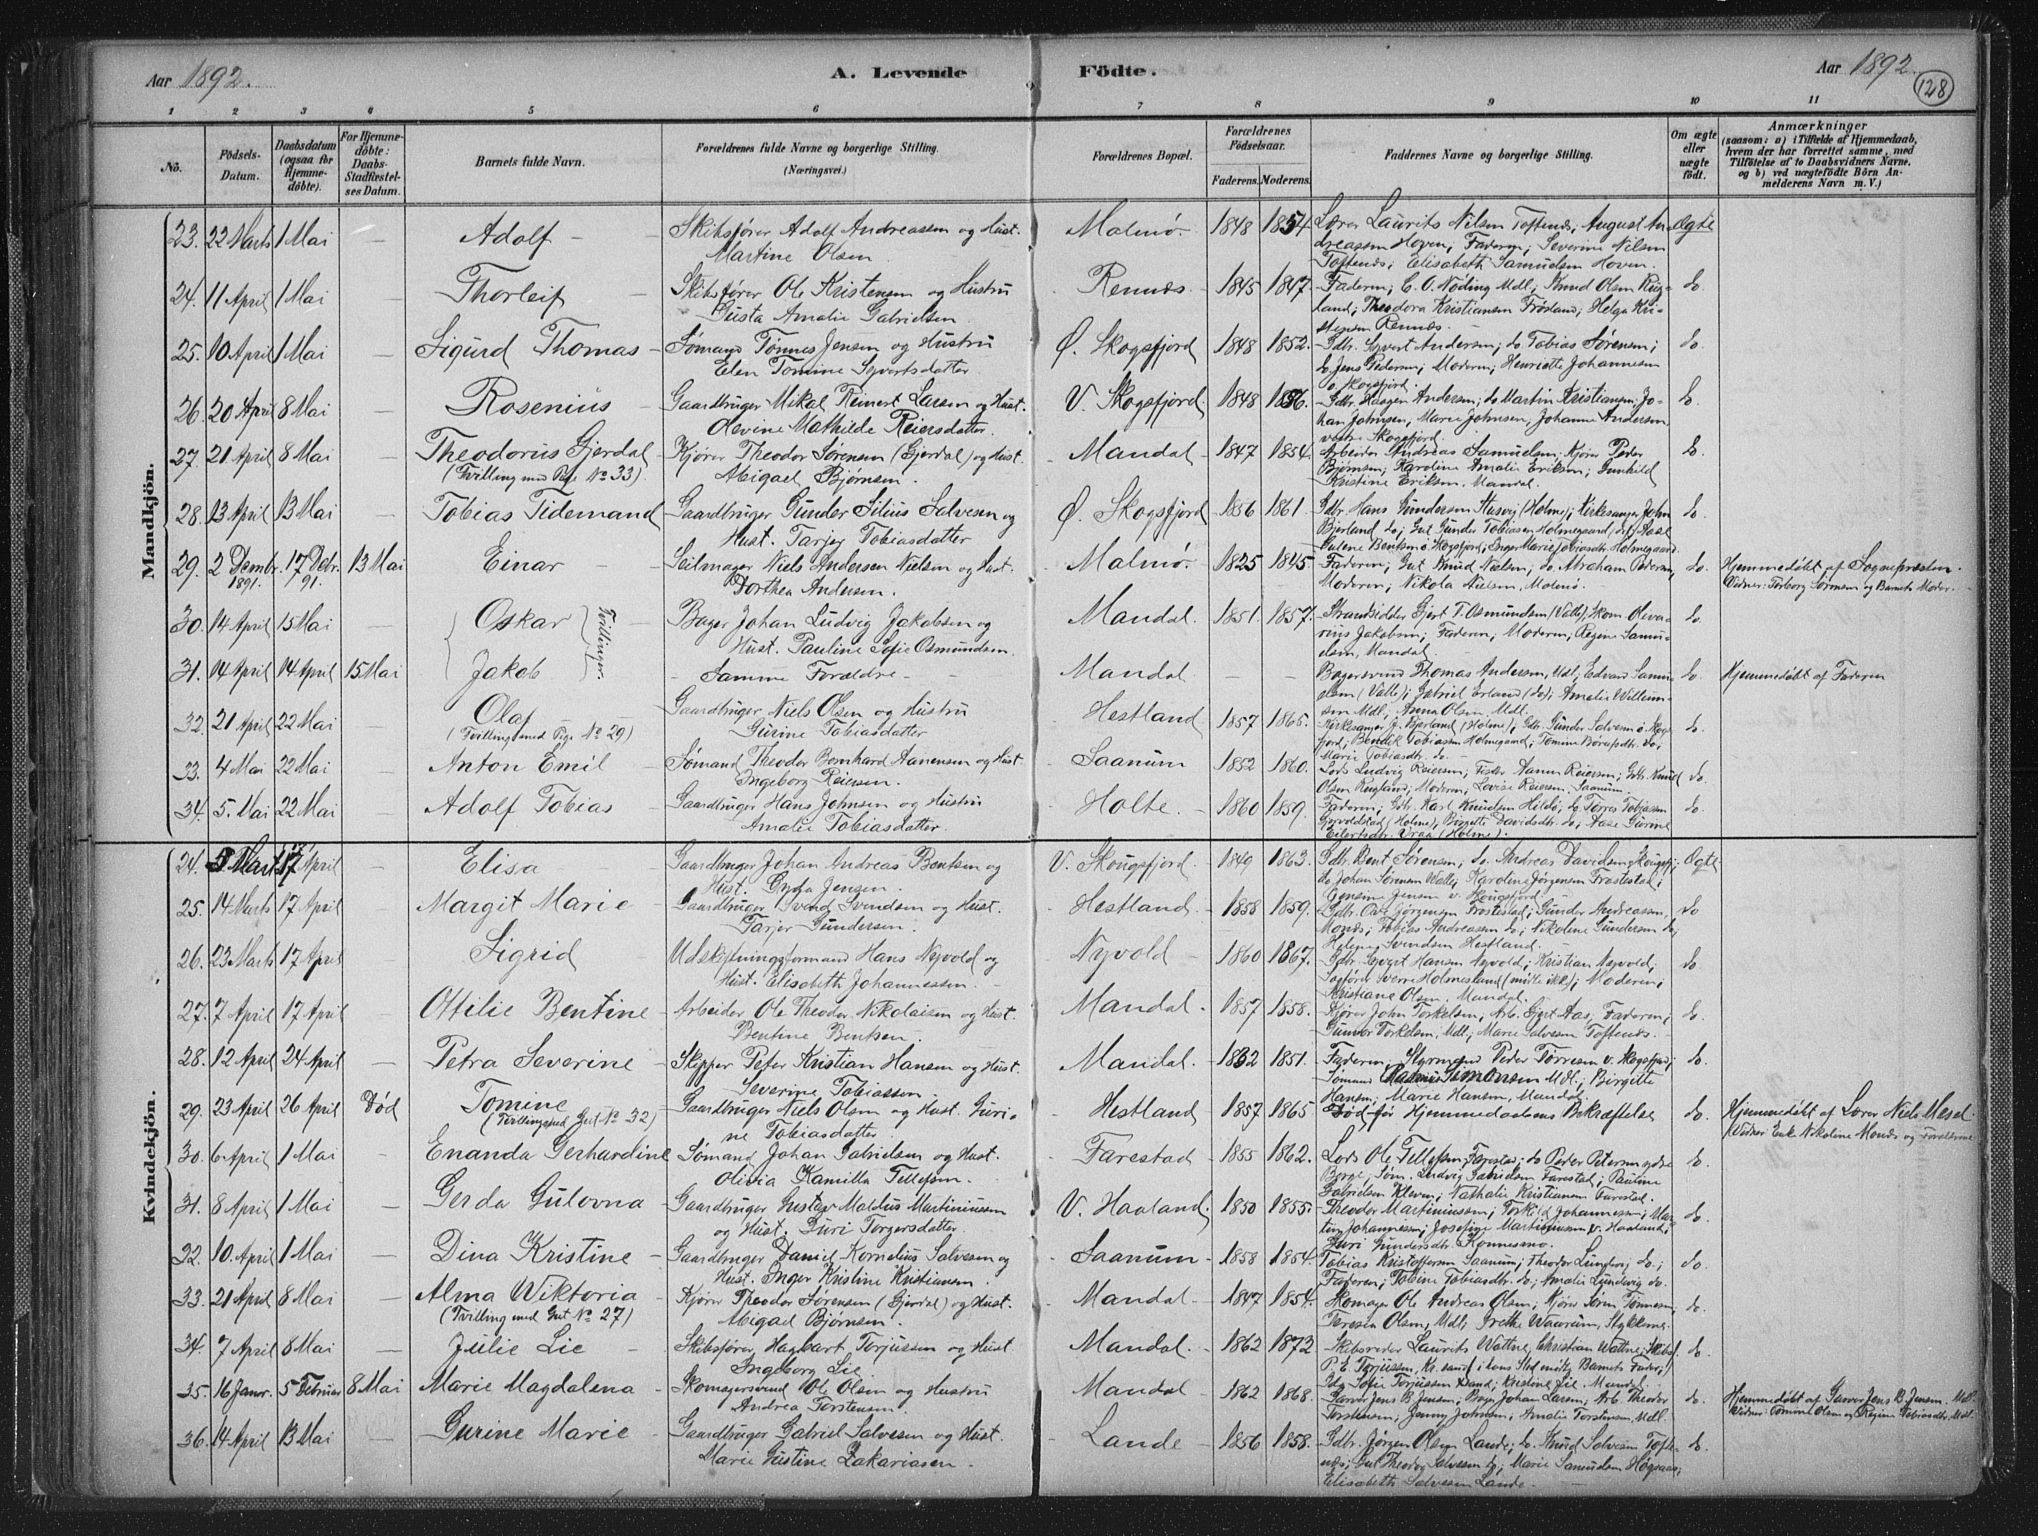 Aar 1892.
A. Levende Födte.
Aar 1892.
128
1 2 3 4 5 6 7 8 9 10 11
No.
Födsels-Datum.
Daabsdatum (ogsaa for Hjemme-döbte).
For Hjemme-döbte: Daabs-Stadfæstel-ses Datum.
Barnets fulde Navn.
Forældrenes fulde Navne og borgerlige Stilling. (Næringsvei.)
Forældrenes Bopæl.
Forældrenes Födselsaar.
Faderens. Moderens.
Faddernes Navne og borgerlige Stilling.
Om ægte eller uægte födt.
Anmærkninger
(saasom: a) i Tilfælde af Hjemmedaab, hvem der har forrettet samme, med Tilföielse af to Daabsvidners Navne, og b) ved uægtefödte Börn An-melderens Navn m. V.)
Mandkjön.
23. 22 Marts 1 Mai — Adolf — Skibsfører Adolf Andreassen og Hust. Malmø. 1848 1854 Lærer Laurits Nilsen Toftenes; August An- Ægte
Martine Olsen. dreassen Hoven; Faderen; Severine Nilsen
Toftenes; Elisabeth Samuelsen Hoven.
24. 11 April 1 Mai — Thorleif — Skibsfører Ole Kristensen og Hustru Rennes. 1845 1847. Faderen; C. O. Nöding Mdl; Knud Olsen Rug- do.
Amalie Gabrielsen land; Theodora Kristiansen Frøsland; Helga Kri-
stensen Rennes.
25. 10 April 1 Mai — Sigurd Thomas — Sømand Tønnes Jensen og Hustru Ø. Skogsfjord 1848 1852. Gdbr. Syvert Andersen; do Tobias Sørensen; do.
Elen Tomine Syvertsdatter do Jens Pedersen; Moderen; Henriette Johannesen
ø. Skogsfjord.
26. 20 April 8 Mai — Rosenius — Gaardbruger Mikal Reinert Larsen og Hust. V. Skogsfjord. 1848 1856. Gdbr. Haagen Andersen; do Martin Kristiansen; Jo- do.
Olevine Mathilde Reiersdatter. han Johnsen, Marie Johnsen, Johanne Andersen
vestre Skogsfjord.
27. 21 April 8 Mai — Theodorus Gjerdal Kjører Theodor Sørensen (Gjerdal) og Hust. Mandal. 1847 1854. Arbeider Andreas Samuelsen; Kjører Peder do.
(Tvilling med Pige No 33) Abigael Bjørnsen. Bjørnsen; Karoline Amalie Eriksen; Gunhild
Kristine Eriksen. Mandal.
28. 13 April 13 Mai — Tobias Tidemand Gaardbruger Gunder Silius Salvesen og Ø. Skogsfjord 1856 1861. Gdbr. Hans Gundersen (Holme); Kirkesanger John do.
Hust. Tarjer Tobiasdatter Bjerland do; Gut Gunder Tobiasen Holmegaard;
Skogsfjord; Inger Marie Tobiasdtr. Holmegaard.
29. 2 Decembr. 1891. 17 Debr. 91. 13 Mai Einar — Seilmager Niels Andersen Nielsen og Hust. Malmø. 1825 1845. Faderen; Gut Knud Nielsen; do Abraham Pedersen; do. Hjemmedøbt af Sognepræsten.
Dorthea Andersen. Moderen; Nikola Nielsen, Malmø. Vidner: Torborg Sørensen og Barnets Moder.
30. 14 April 15 Mai — Oskar Tvillinger Bager Johan Ludvig Jakobsen og Mandal. 1851. 1857. Strandsidder Gjert T. Osmundsen (Valle); Skom. Oleva- do.
Hust. Pauline Sofie Osmundsen. rius Jakobsen; Faderen; Moderen, Regine Samu-
elsen, Mandal.
31. 14 April 14 April 15 Mai Jakob — Samme Forældre — Mandal — — Bagersvend Thomas Andersen, Mdl, Edvard Samu- do. Hjemmedøbt af Faderen
elsen (Valle); Gabriel Erland (do); Amalie Willum-
sen Mdl., Anna Olsen Mdl.
32. 21 April 22 Mai — Olaf Gaardbruger Niels Olsen og Hustru Hestland 1857 1865. Kirkesanger J. Bjerland (Holme); Gdbr. Gunder Salvesen ø Skogs- do.
(Tvilling med Pige No 29) Gurine Tobiasdatter fjord; Bendik Tobiasen Holmegaard; Tomine do;
Marie Tobiasdtr. do.
33. 4 Mai 22 Mai — Anton Emil — Sømand Theodor Bernhard Aanensen og Hust Saanum 1852 1860. Lods Ludvig Reiersen; Fisker Aanen Reiersen; Gdbr. Knud do.
Ingeborg Reiersen. Olsen Rugland; Moderen; Lovise Reiersen, Saanum.
34. 5. Mai 22 Mai — Adolf Tobias — Gaardbruger Hans Johnsen og Hustru Holte. 1860 1859. Faderen; Gdbr. Karl Knudsen Hildø; do Tørres Tobiassen do.
Amalie Tobiasdatter. (Holme); Birgitte Davidsdtr. do; Aase Gurine
Eilertsdtr. Vraa (Holme).
Kvindekjön.
24. 5 Marts 17 April — Elisa — Gaardbruger Johan Andreas Bentsen og V. Skougsfjord. 1849 1863. Gdbr. Bent Sørensen; do. Andreas Davidsen Skougsfj; Ægte
Hust. Gyda Jensen. do Johan Sørensen Valle; Karoline Jørgensen Frostestad;
Jensen v. Skougsfjord.
25. 14 Marts 17 April — Margit Marie — Gaardbruger Svend Svendsen og Hust. Hestland. 1858 1859. Gdbr. Ole Jørgensen Frostestad; Gunder Andreassen do
Tarjer Gundersen. Mones; Tobias Andreassen do; Nikoline Gundersen do;
Helene Svendsen Hestland.
26. 23 Marts 17 April — Sigrid Udskiftningsformand Hans Nyvold og Nyvold 1860 1867. Gdbr. Syvert Hansen Nyvold; Kristian Nyvold; do
Hust. Elisabeth Johannessen. Sagfører Sverre Holmesland (mötte ikke); Moderen;
Kristiane Olsen. Mandal.
27. 7 April 17 April — Ottilie Bentine Arbeider Ole Theodor Nikolaisen og Hust. Mandal. 1857 1858. Kjører John Torkelsen, Arb. Gjert Aas; Faderen; do.
Bentine Bentsen. Gunvor Torkelsen, Mdl; Marie Salvesen Toftenes.
28. 12 April 24 April — Petra Severine — Skipper Peter Kristian Hansen og Hust. Mandal. 1832 1851. Faderen; Styrmand Peder Tørresen v. Skogsfjord; do.
Severine Tobiassen. Sømand Simonsen Mdl; Birgitte
Hansen; Marie Hansen, Mandal.
29. 23 April 26 April Død Tomine Gaardbruger Niels Olsen og Hust. Guri- Hestland 1857 1865 Død før Hjemmedaabens Bekræftelse do. Hjemmedøbt af Lærer Niels Mesel.
(Tvilling med Gut No 32) ne Tobiasdatter. (Vidner Enk Nikoline Mones og Forældrene
30. 6 April 1 Mai — Enanda Gerhardine Sømand Johan Gabrielsen og Hust. Farestad 1855 1862. Lods Ole Tellefsen, Farestad; do Peder Petersen ydre do.
Olivia Kamilla Tellefsen. Berge; Søm. Ludvig Gabrielsen Farestad; Pauline
Gabrielsen Kleven; Nathalie Kristiansen Farestad.
31. 8 April 1 Mai — Gerda Gulovna Gaardbruger Gustav Maldus Martiniussen V. Haaland. 1850 1855. Theodor Martiniussen; Torkild Johannessen; Mar- do.
og Hust. Guri Torgersdatter. tin Johannessen; Josefine Martiniussen v. Haaland;
Guri Gundersdtr. Konnesmo.
32. 10. April 1 Mai — Dina Kristine — Gaardbruger Daniel Kornelius Salvesen og Saanum — 1858 1854. Tobias Kristoffersen Saanum; Theodor Lundvig do; do.
Hust. Inger Kristine Kristiansen. Faderen; Tobine Tobiasdtr. do; Amalie Lundvig do.
33. 21 April 8 Mai — Alma Wiktoria — Kjører Theodor Sørensen (Gjerdal) og Hust. Mandal — 1847 1854. Skomager Ole Andreas Olsen; Kjører Søren Tønnesen; do.
(Tvilling med Gut No 27) Abigael Bjørnsen. Teresia Olsen, Mdl, Grethe Waarum,
34. 7 April 8 Mai — Julie Lie — Skibsfører Hagbart Torjussen og Hust Mandal. 1862 1872 Skibsreder Laurits Wattne, Christian Wattne; Skibsf. do.
Ingeborg Lie. P. E. Torjussen, Kr.sand (i hans Sted mötte Barnets Fader;)
Sofie Torjussen Kr.sand; Kristine Lie. Mandal.
35. 16 Janr. 5 Februar 8 Mai Marie Magdalena Skomagersvend Ole Olsen og Hustru Mandal 1862 1868. Garver Jens B. Jensen; Bager Johan Larsen; Arb. Theodor do. Hjemmedøbt af Garver Jens B. Jensen. Mdl.
Andrea Torstensen. Torstensen; Jenny Johnsen; Amalie Torstensen, Mdl. Vidner: Tomine Olsen og Regine Tobiasdtr. Mdl.
36. 14 April 13 Mai — Gurine Marie — Gaardbruger Gabriel Salvesen og Hust. Lande — 1856 1858. Gdbr. Jørgen Olsen Lande; do. Knud Salvesen Toft- do.
Marie Gustine Zakariasen. enes; Gut Theodor Salvesen do; Marie Samuelsen Høgsaas;
Elisabeth Salvesen Lande.